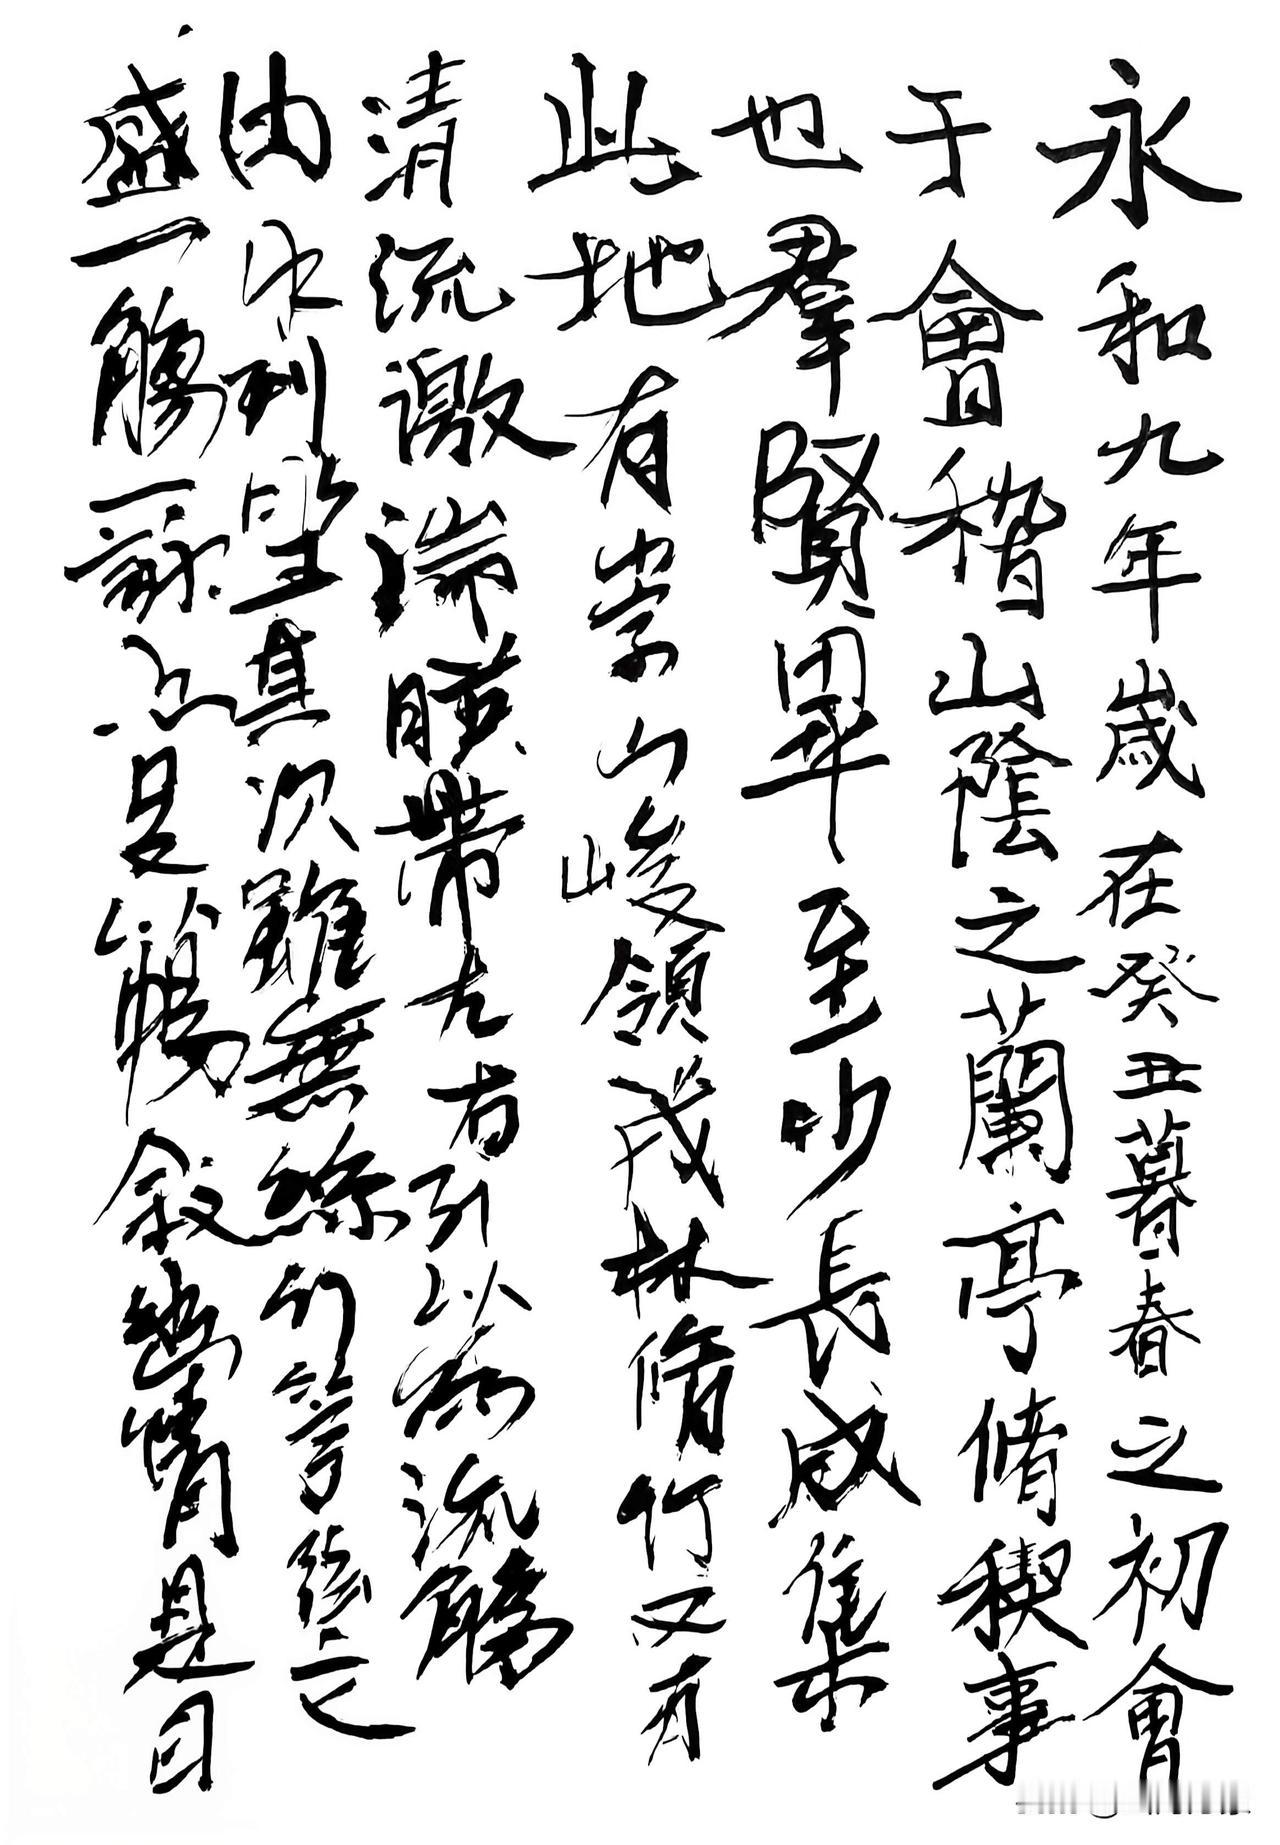 永和九年歲在癸丑暮春之初會
于會稽山陰之蘭亭脩稧事
也羣賢畢至少長咸集
此地有崇山峻領茂林脩竹又有
清流激湍暎帶左右引以為流觴
曲水列坐其次雖無絲竹管絃之
盛一觴一詠亦足以暢敘幽情是日